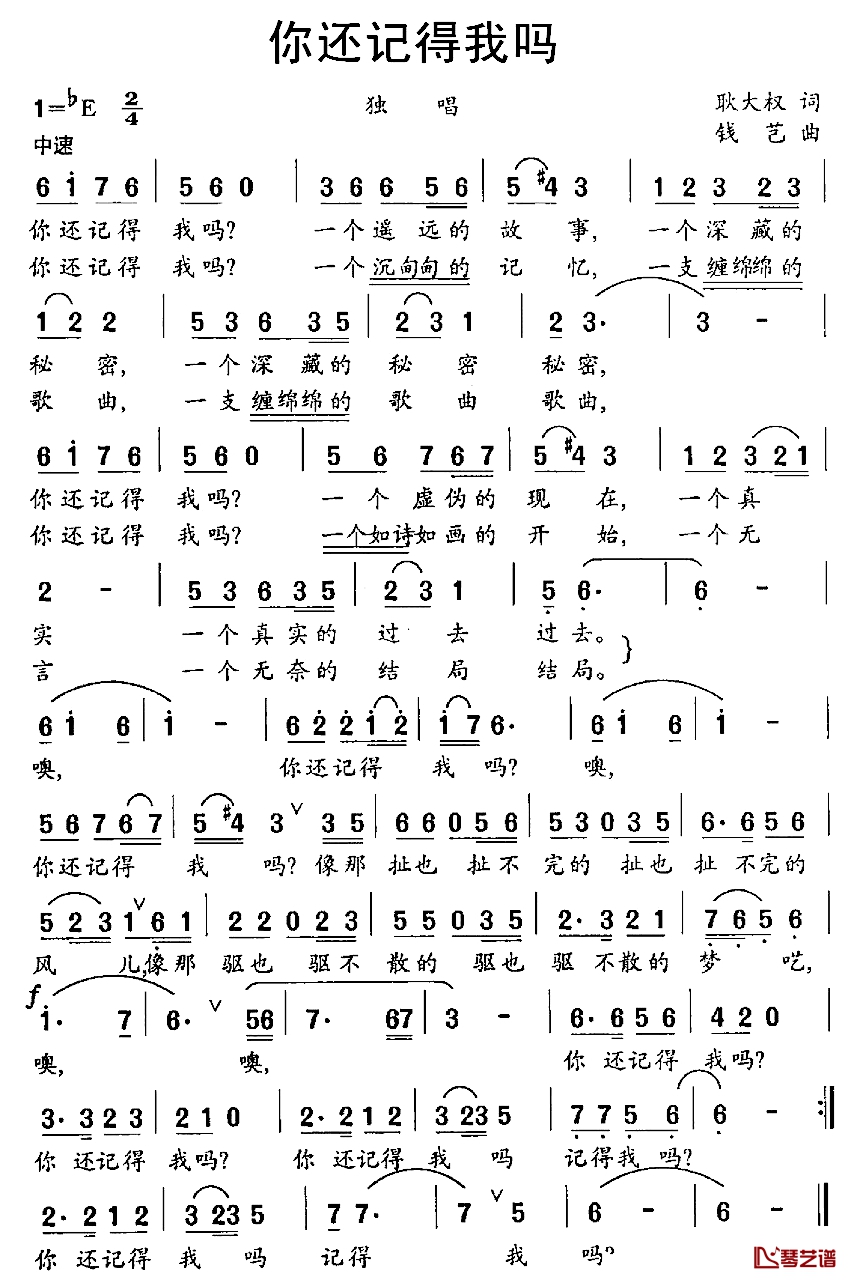 你还记得我吗
1=♭E 2/4 独 唱 耿大权 词
中速 钱 艺 曲
6 i 7 6 | 5 6 0 | 3 6 6 5 6 | 5 #4 3 | 1 2 3 2 3 |
你还记得 我吗? 一个遥远的 故 事, 一个深藏的
你还记得 我吗? 一个沉甸甸的 记 忆, 一支缠绵绵的
1 2 2 | 5 3 6 3 5 | 2 3 1 | 2 3· | 3 - |
秘 密, 一个深藏的 秘密 秘密,
歌 曲, 一支缠绵绵的 歌曲 歌曲,
6 i 7 6 | 5 6 0 | 5 6 7 6 7 | 5 #4 3 | 1 2 3 2 1 |
你还记得 我吗? 一个虚伪的 现 在, 一个真
你还记得 我吗? 一个如诗如画的 开 始, 一个无
2 - | 5 3 6 3 5 | 2 3 1 | 5 6· | 6 - |
实 一个真实的 过去 过去。
言 一个无奈的 结局 结局。
6 i 6 | i - | 6 2 2 i 2 | i 7 6· | 6 i 6 | i - |
噢, 你还记得 我吗? 噢,
5 6 7 6 7 | 5 #4 3 ∨ 3 5 | 6 6 0 5 6 | 5 3 0 3 5 | 6· 6 5 6 |
你还记得 我 吗?像那 扯也 扯不 完的 扯也 扯 不完的
5 2 3 1 ∨ 6 1 | 2 2 0 2 3 | 5 5 0 3 5 | 2· 3 2 1 | 7 6 5 6 |
风 儿,像那 驱也 驱不 散的 驱也 驱 不散的 梦 呓,
f i· 7 | 6· ∨ 5 6 | 7· 6 7 | 3 - | 6· 6 5 6 | 4 2 0 |
噢, 噢, 你 还记得 我吗?
3· 3 2 3 | 2 1 0 | 2· 2 1 2 | 3 2 3 5 | 7 7 5 6 | 6 - :||
你 还记得 我吗? 你 还记得 我 吗 记得我吗?
2· 2 1 2 | 3 2 3 5 | 7 7· | 7 ∨ 5 | 6 - | 6 - ||
你 还记得 我 吗 记得 我 吗?
琴艺谱